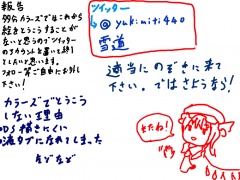 報告
うごメモカラーズではこれから
絵をとうこうすることが
ないと思うのでツイッター
のアカウントを置いて終り
にしたいと思います。
フォロー等ご自由にお願し
下さい!
カラーズでとうこう
しない理由
DS描きにくい
液タブになれてしまった
などなど
ツイッター
→@yuki-miti440
雪道
適当にのぞきに来て
下さい。ではさようなら!
またね!